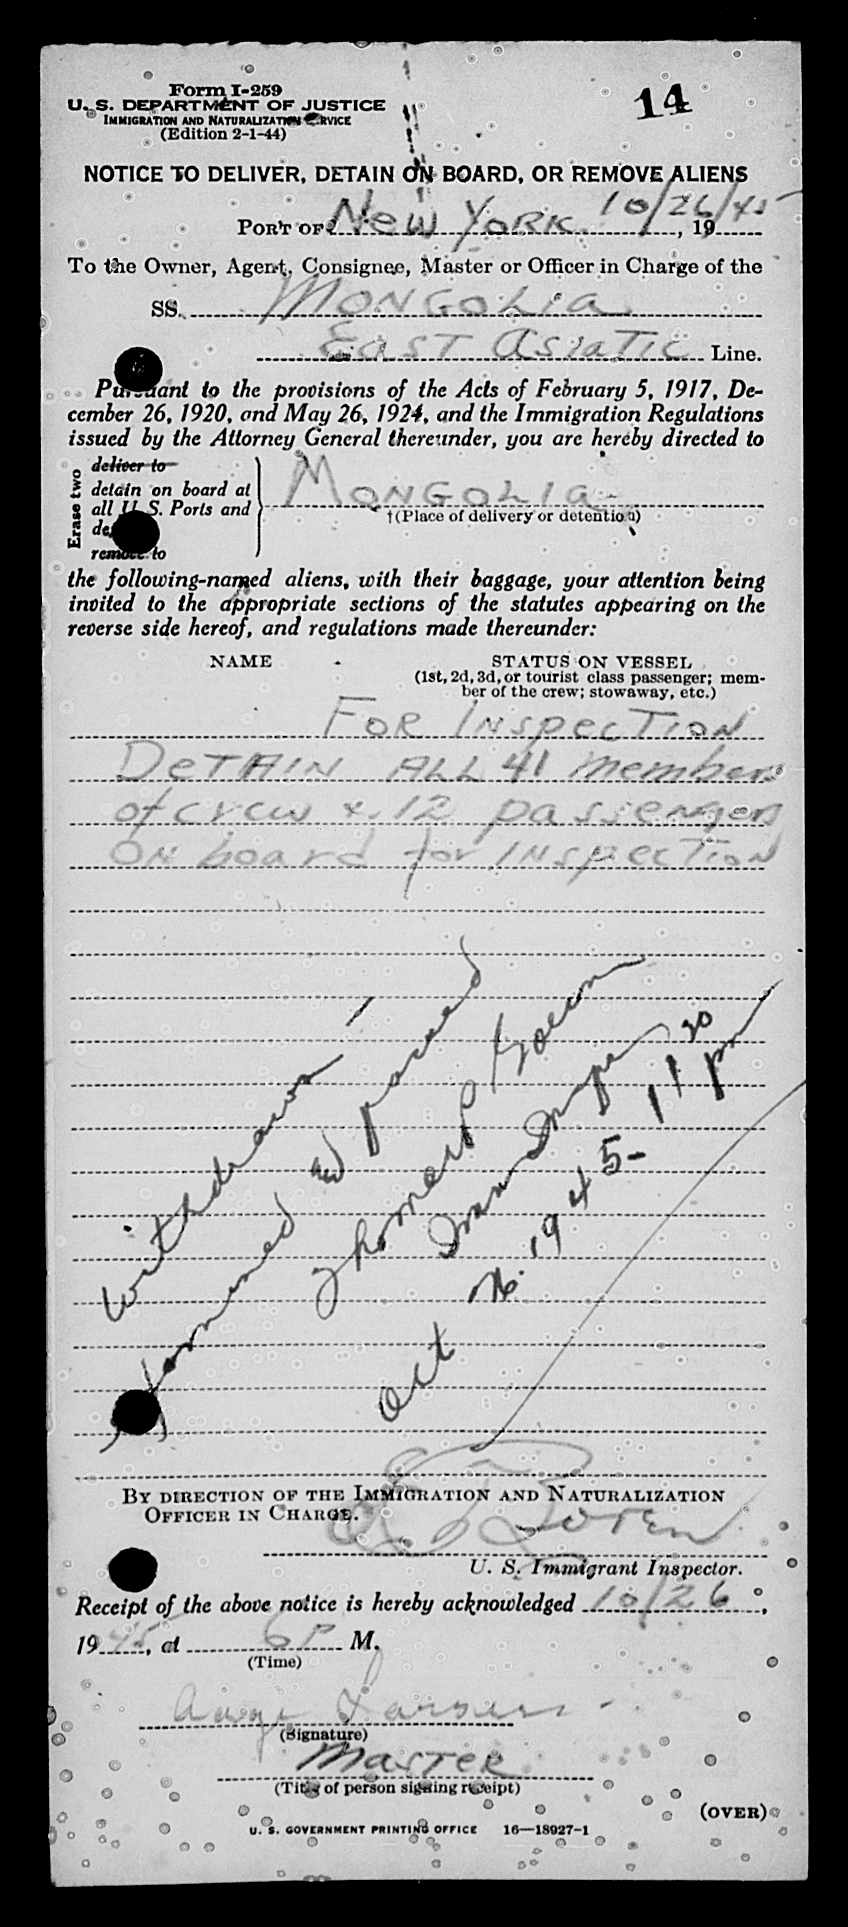 Form I-259
14
U. S. DEPARTMENT OF JUSTICE
IMMIGRATION AND NATURALIZATION SERVICE
(Edition 2-1-44)
NOTICE TO DELIVER, DETAIN ON BOARD, OR REMOVE ALIENS
PORT OF New York 10/26/45, 19
To the Owner, Agent, Consignee, Master or Officer in Charge of the
SS. Mongolia
East Asiatic Line.
Pursuant to the provisions of the Acts of February 5, 1917, De-
cember 26, 1920, and May 26, 1924, and the Immigration Regulations
issued by the Attorney General thereunder, you are hereby directed to
Erase two
deliver to
detain on board at
all U. S. Ports and
remove to
Mongolia
†(Place of delivery or detention)
the following-named aliens, with their baggage, your attention being
invited to the appropriate sections of the statutes appearing on the
reverse side hereof, and regulations made thereunder:
NAME
STATUS ON VESSEL
(1st, 2d, 3d, or tourist class passenger; mem-
ber of the crew; stowaway, etc.)
For Inspection
Detain all 41 members
of crew & 12 passengers
on board for inspection
Withdrawn —
Examined & passed
Thomas P
Imm Insp
Oct 1945- 11 30 pm
BY DIRECTION OF THE IMMIGRATION AND NATURALIZATION
OFFICER IN CHARGE.
Boten
U. S. Immigrant Inspector.
Receipt of the above notice is hereby acknowledged 10/26,
1945, at 6 P M.
(Time)
Aage Larsen
(Signature)
Master
(Title of person signing receipt)
(OVER)
U. S. GOVERNMENT PRINTING OFFICE 16—18927-1